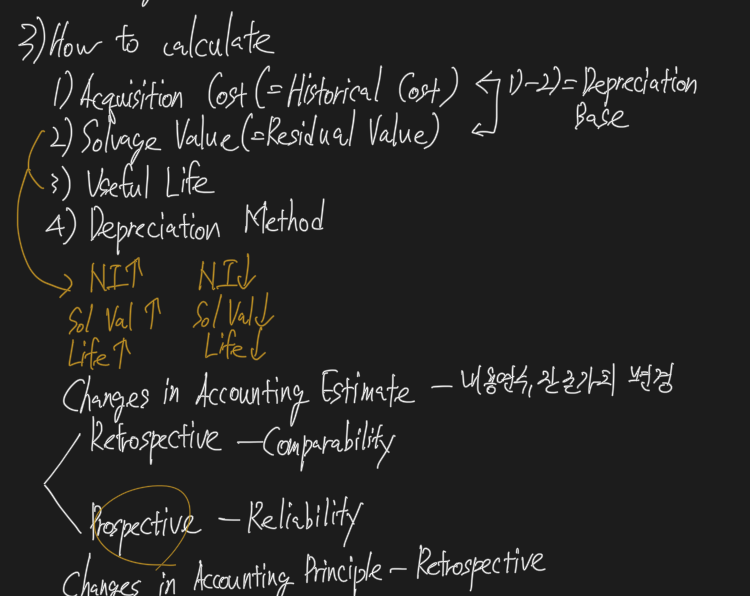 3) How to calculate
1) Acquisition Cost (= Historical Cost) 1)-2) = Depreciation
Base
2) Solvage Value (= Residual Value)
3) Useful Life
4) Depreciation Method
NI↑ NI↓
Sol Val ↑ Sol Val↓
Life↑ Life↓
Changes in Accounting Estimate – 내용연수, 잔존가치 변경
Retrospective – Comparability
Prospective – Reliability
Changes in Accounting Principle – Retrospective